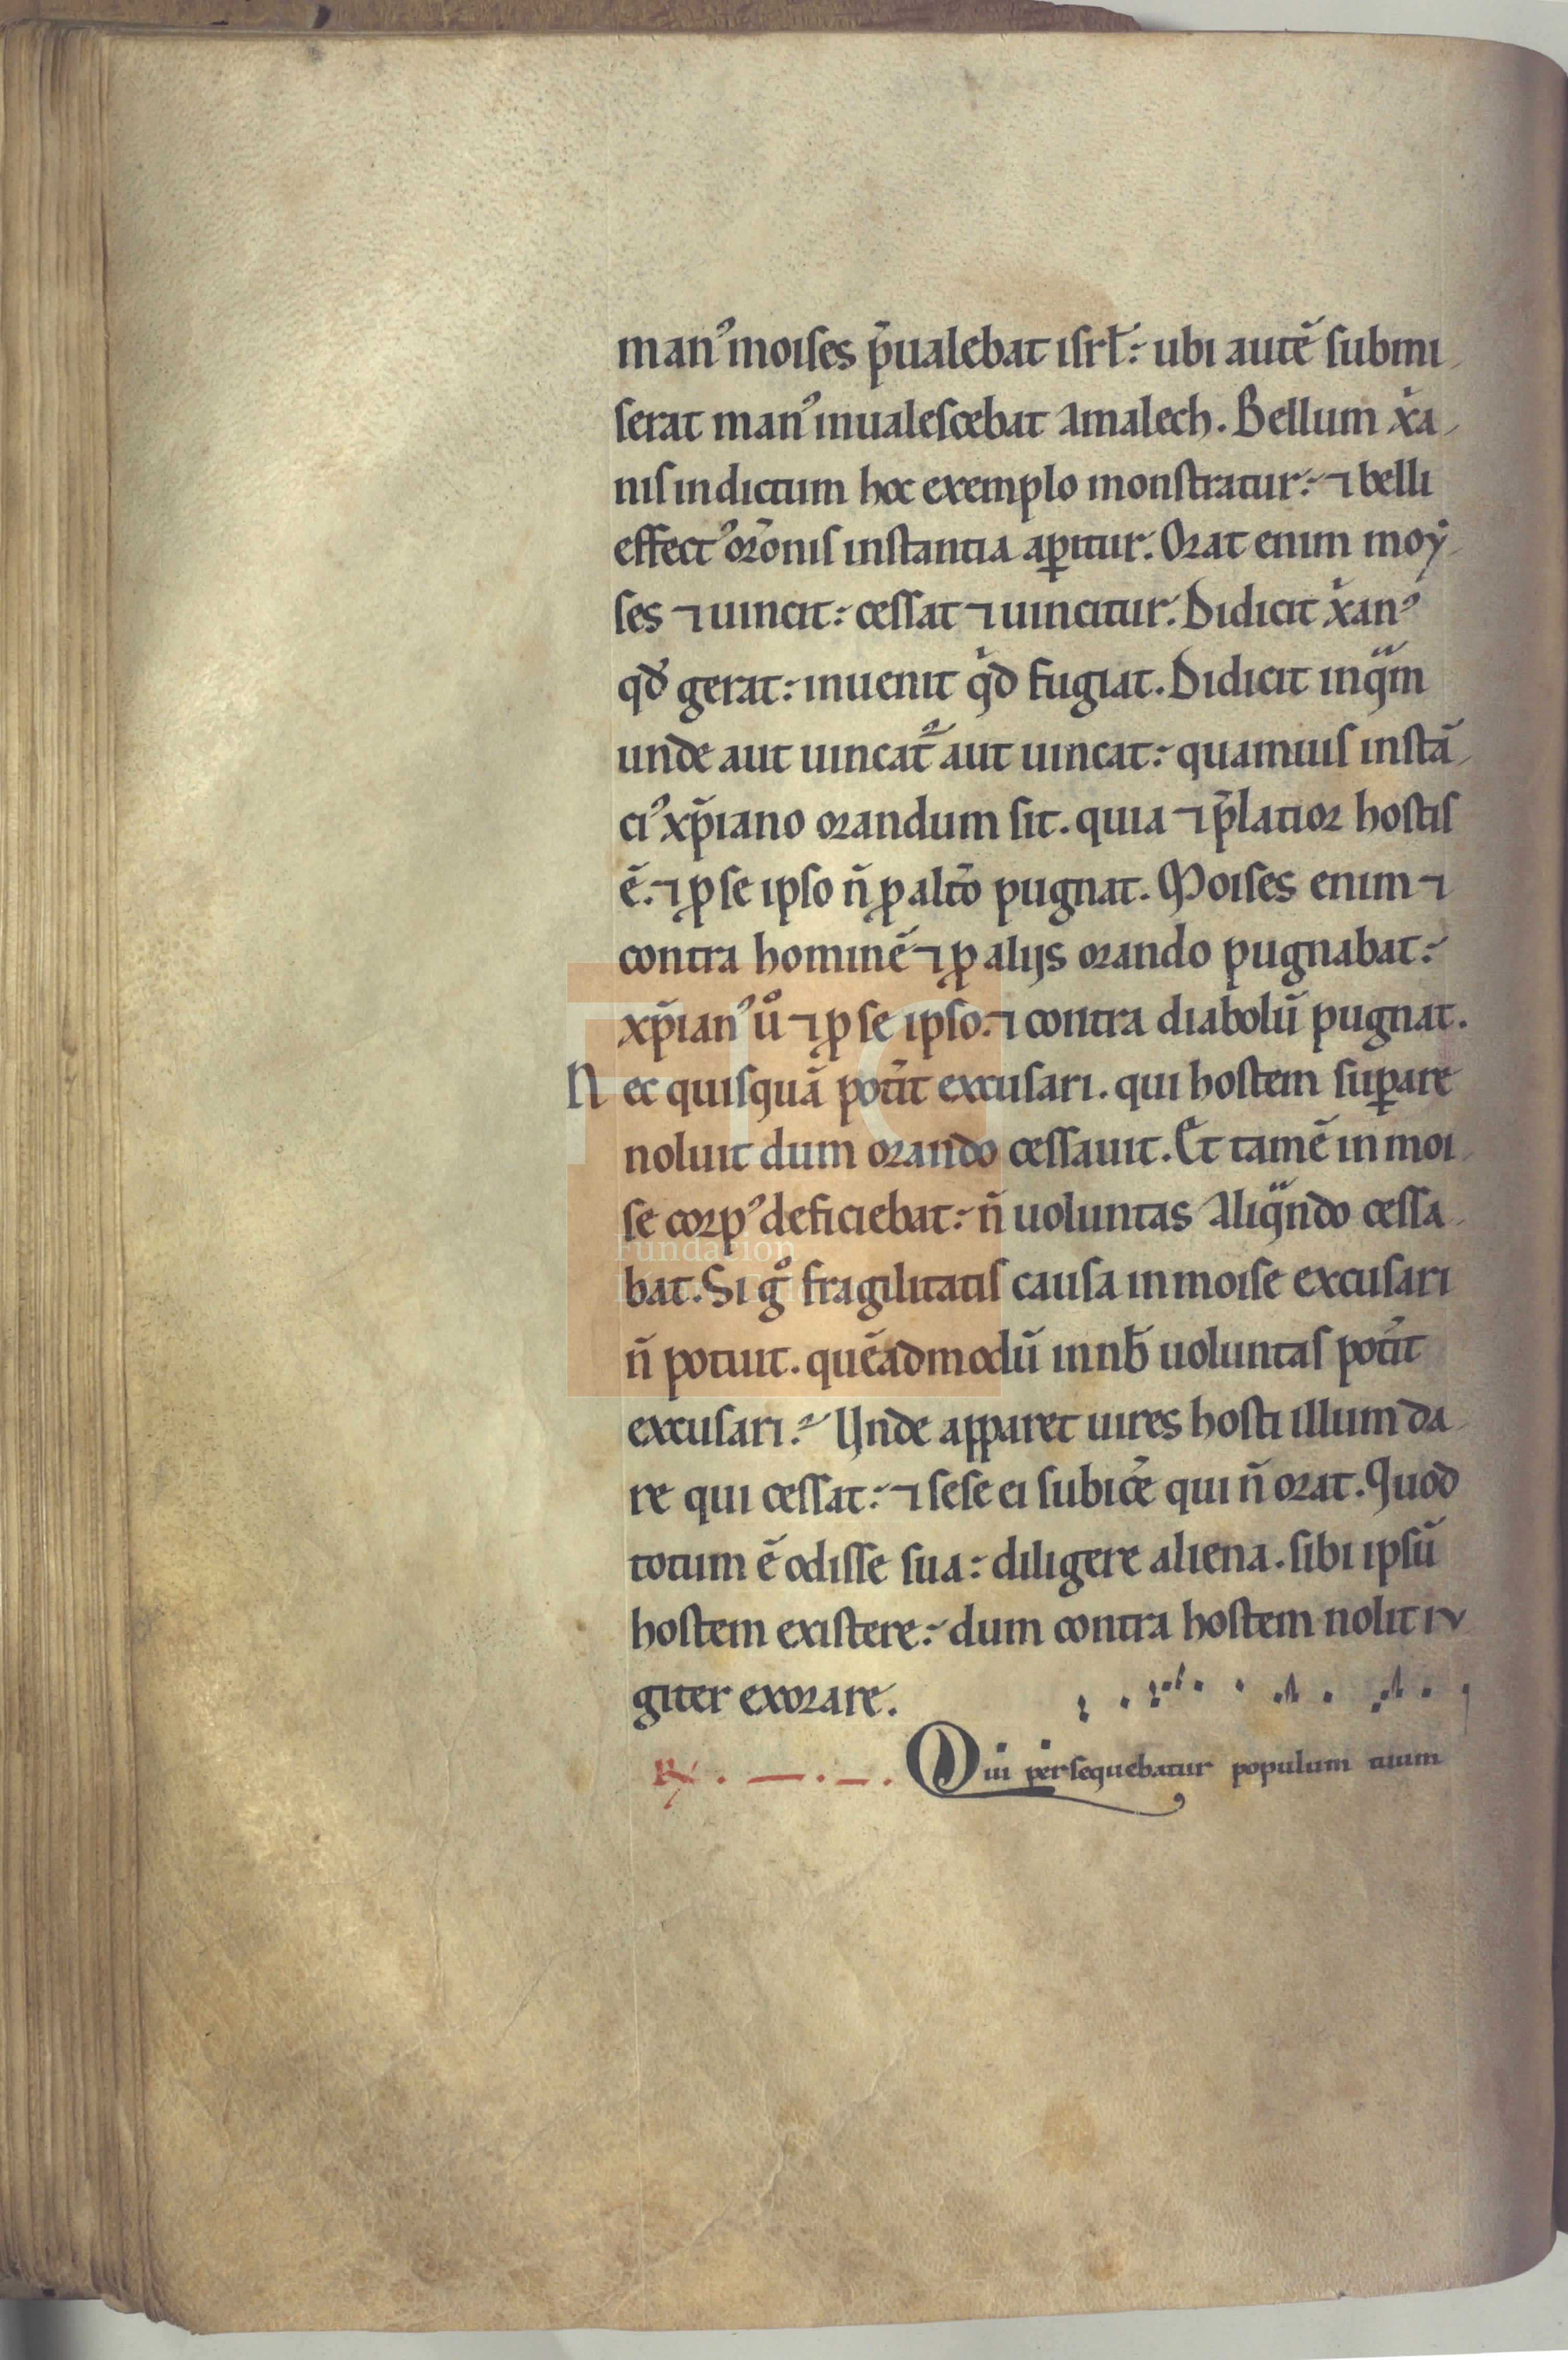 manꝰ moises p̄ualebat isrł: ubi autē submi
serat manꝰ inualescebat Amalech. Bellum xᵢa
nis indictum hoc exemplo monstratur: ⁊ belli
effectꝰ or̄onis instantia aꝑitur. Orat enim moẏ
ses ⁊ uincit: cessat ⁊ uincitur. Didicit xᵢanꝰ
qd̓ gerat: inuenit qͥd fugiat. Didicit inqᵃm
unde aut uincat᷑ aut uincat: quamuis instā
ciꝰ xp̄iano orandum sit. quia ⁊ p̄latior hostis
ē. ⁊ ꝓ se ipso n̄ ꝓ alt̄o pugnat. Moises enim ⁊
contra hominē ⁊ ꝓ alijs orando pugnabat:
xp̄ianꝰ uͦ ⁊ ꝓ se ipso. ⁊ contra diabolū pugnat.
Nec quisquā pot̄it excusari. qui hostem suꝑare
noluit dum orando cessauit. Et tamē in moi
se corpꝰ deficiebat: n̄ uoluntas Aliqᵃndo cessa
bat. Si gͦ fragilitatis causa in moise excusari
n̄ potuit. quēadmodū in nƀ uoluntas pot̄it
excusari. Unde apparet uires hosti illum da
re qui cessat: ⁊ sese ei subic̄e qui n̄ orat. Quod
totum ē odisse sua: diligere aliena. sibi ipsū
hostem existere: dum contra hostem nolit iu
giter exorare.
℟. Qui persequebatur populum tuum
Fundación